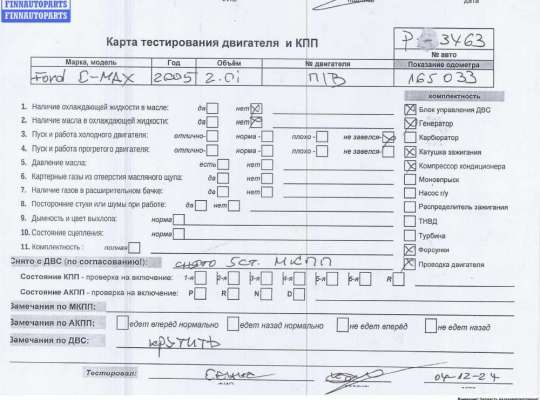 FINNAUTOPARTS
FINNAUTOPARTS
дата
Карта тестирования двигателя и КПП
P-3463
№ авто
Марка, модель Год Объём № двигателя Показание одометра
Ford C-MAX 2005 2.0i П/В 165033
комплектность
1. Наличие охлаждающей жидкости в масле: да нет
Блок управления ДВС
2. Наличие масла в охлаждающей жидкости: да нет
Генератор
3. Пуск и работа холодного двигателя: отлично- норма - плохо - не завелся-
Карбюратор
4. Пуск и работа прогретого двигателя: отлично- норма - плохо - не завелся-
Катушка зажигания
5. Давление масла: есть нет
Компрессор кондиционера
6. Картерные газы из отверстия масляного щупа: да нет
Моновпрыск
7. Наличие газов в расширительном бачке: да нет
Насос г/у
8. Посторонние стуки или шумы при работе: да нет
Распределитель зажигания
9. Дымность и цвет выхлопа: норма
ТНВД
10. Состояние сцепления: норма
Турбина
11. Комплектность : полная
Форсунки
Снято с ДВС (по согласованию!): снято 5ст. МКПП
Проводка двигателя
Состояние КПП - проверка на включение: 1-я 2-я 3-я 4-я 5-я 6-я R
Состояние АКПП - проверка на включение: P R N D
Замечания по МКПП:
Замечания по АКПП: едет вперёд нормально едет назад нормально не едет вперёд не едет назад
Замечания по ДВС: крутить
Тестировал: 04-12-24